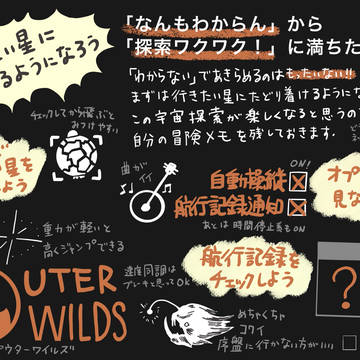 「なんもわからん」から
「探索ワクワク！」に満ちた
い星に
るようになろう
「わからない」であきらめるのはもったいない!!
まずは行きたい星にたどり着けるようにな
この宇宙探索が楽しくなると思うの
自分の冒険メモを残しておきます。
チェックしてから飛ぶと
みつけやすい
星を
よう
曲が
イイ
ON!
自動操縦
航行記録通知
あとは時間停止系もON
オプ
見な
重力が軽いと
高くジャンプできる
航行記録を
チェックしよう
UTER
WILDS
アウターワイルズ
速度同調は
ブレーキと思ってOK
めちゃくちゃ
コワイ
序盤に行かない方がいい
?